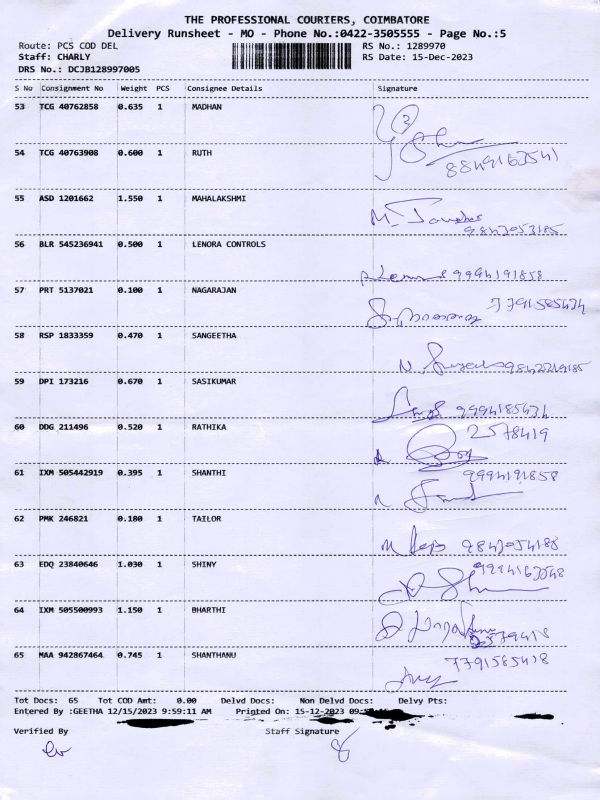 THE PROFESSIONAL COURIERS, COIMBATORE
Delivery Runsheet - MO - Phone No.:0422-3505555 - Page No.:5
Route: PCS COD DEL RS No.: 1289970
Staff: CHARLY RS Date: 15-Dec-2023
DRS No.: DCJB128997005
S No Consignment No Weight PCS Consignee Details Signature
53 TCG 40762858 0.635 1 MADHAN
54 TCG 40763908 0.600 1 RUTH
55 ASD 1201662 1.550 1 MAHALAKSHMI
56 BLR 545236941 0.500 1 LENORA CONTROLS
9994191858
57 PRT 5137021 0.100 1 NAGARAJAN
58 RSP 1833359 0.470 1 SANGEETHA
59 DPI 173216 0.670 1 SASIKUMAR
60 DDG 211496 0.520 1 RATHIKA 2578419
61 IXM 505442919 0.395 1 SHANTHI 9994191858
62 PMK 246821 0.180 1 TAILOR
63 EDQ 23840646 1.030 1 SHINY
64 IXM 505500993 1.150 1 BHARTHI
65 MAA 942867464 0.745 1 SHANTHANU 7791585418
Tot Docs: 65 Tot COD Amt: 0.00 Delvd Docs: Non Delvd Docs: Delvy Pts:
Entered By :GEETHA 12/15/2023 9:59:11 AM Printed On: 15-12-2023
Verified By Staff Signature